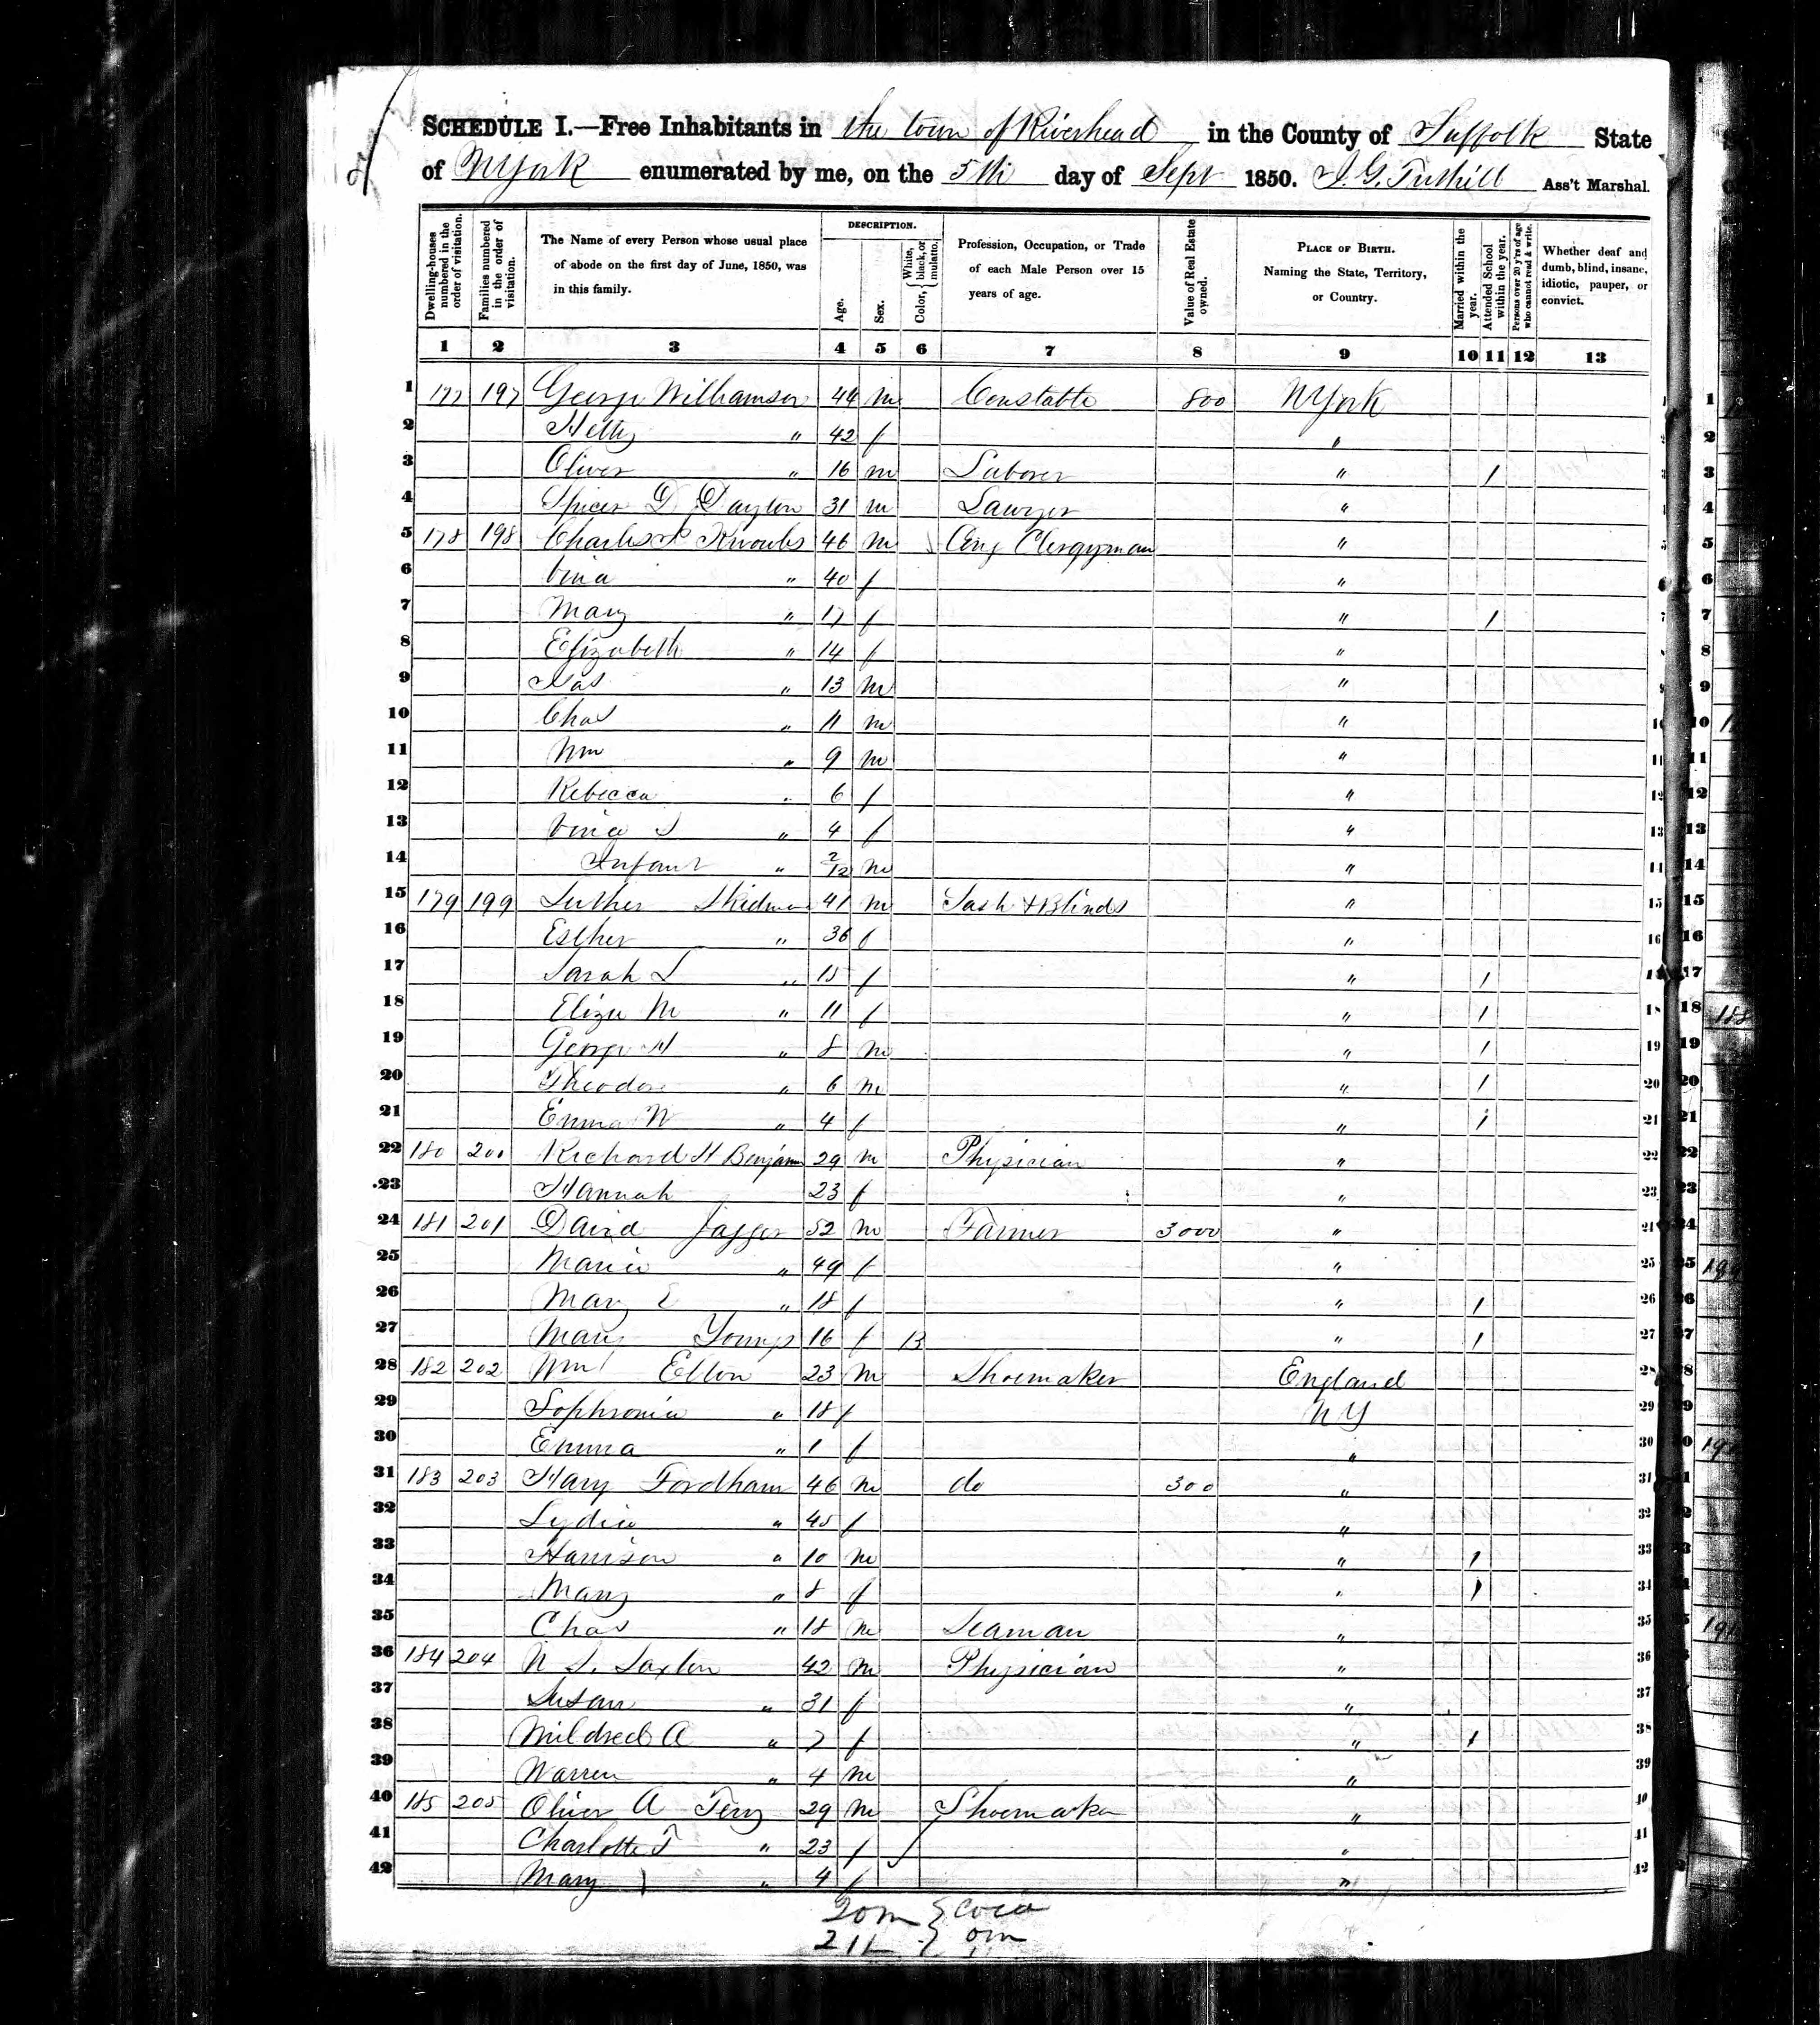 SCHEDULE I.—Free Inhabitants in the town of Riverhead in the County of Suffolk State
of NYork enumerated by me, on the 5th day of Sept 1850. J. G. Tuthill Ass't Marshal.
Dwelling-houses numbered in the order of visitation.
Families numbered in the order of visitation.
The Name of every Person whose usual place of abode on the first day of June, 1850, was in this family.
DESCRIPTION.
Age.
Sex.
Color, { White, black, or mulatto.
Profession, Occupation, or Trade of each Male Person over 15 years of age.
Value of Real Estate owned.
PLACE OF BIRTH. Naming the State, Territory, or Country.
Married within the year.
Attended School within the year.
Persons over 20 y'rs of age who cannot read & write.
Whether deaf and dumb, blind, insane, idiotic, pauper, or convict.
1 2 3 4 5 6 7 8 9 10 11 12 13
1 177 197 George Williamson 44 m Constable 800 NYork 1
2 Hetty " 42 f " 2
3 Oliver " 16 m Laborer " / 3
4 Spicer D Dayton 31 m Lawyer " 4
5 178 198 Charles Knowls 46 m Clergyman " 5
6 " 40 f " 6
7 Mary " 17 f " / 7
8 Elizabeth " 14 f " 8
9 " 13 m " 9
10 Chas " 11 m " 10
11 Wm " 9 m " 11
12 Rebecca " 6 f " 12
13 " 4 f " 13
14 Infant " 2/12 m " 14
15 179 199 Luther Skidmore 41 m Sash + Blinds " 15
16 Esther " 36 f " 16
17 Sarah L " 15 f " / 17
18 Eliza M " 11 f " / 18
19 George H " 8 m " / 19
20 Theodore " 6 m " / 20
21 Emma W " 4 f " / 21
22 180 200 Richard H Benjamin 29 m Physician " 22
23 Hannah 23 f " 23
24 181 201 David Jagger 52 m Farmer 3000 " 24
25 Maria " 49 f " 25
26 Mary E " 18 f " / 26
27 Mary Youngs 16 f B " / 27
28 182 202 Wm Elton 23 m Shoemaker England 28
29 Sophronia " 18 f NY 29
30 Emma " 1 f " 30
31 183 203 Fordham 46 m do 300 " 31
32 Lydia " 45 f " 32
33 Harrison " 10 m " / 33
34 Mary " 8 f " / 34
35 Chas " 18 m Seaman " 35
36 184 204 N S. Saxton 42 m Physician " 36
37 Susan " 31 f " 37
38 Mildred A " 7 f " / 38
39 Warren " 4 m " 39
40 185 205 Oliver A Terry 29 m Shoemaker " 40
41 Charlotte T " 23 f " 41
42 Mary " 4 f " 42
20m